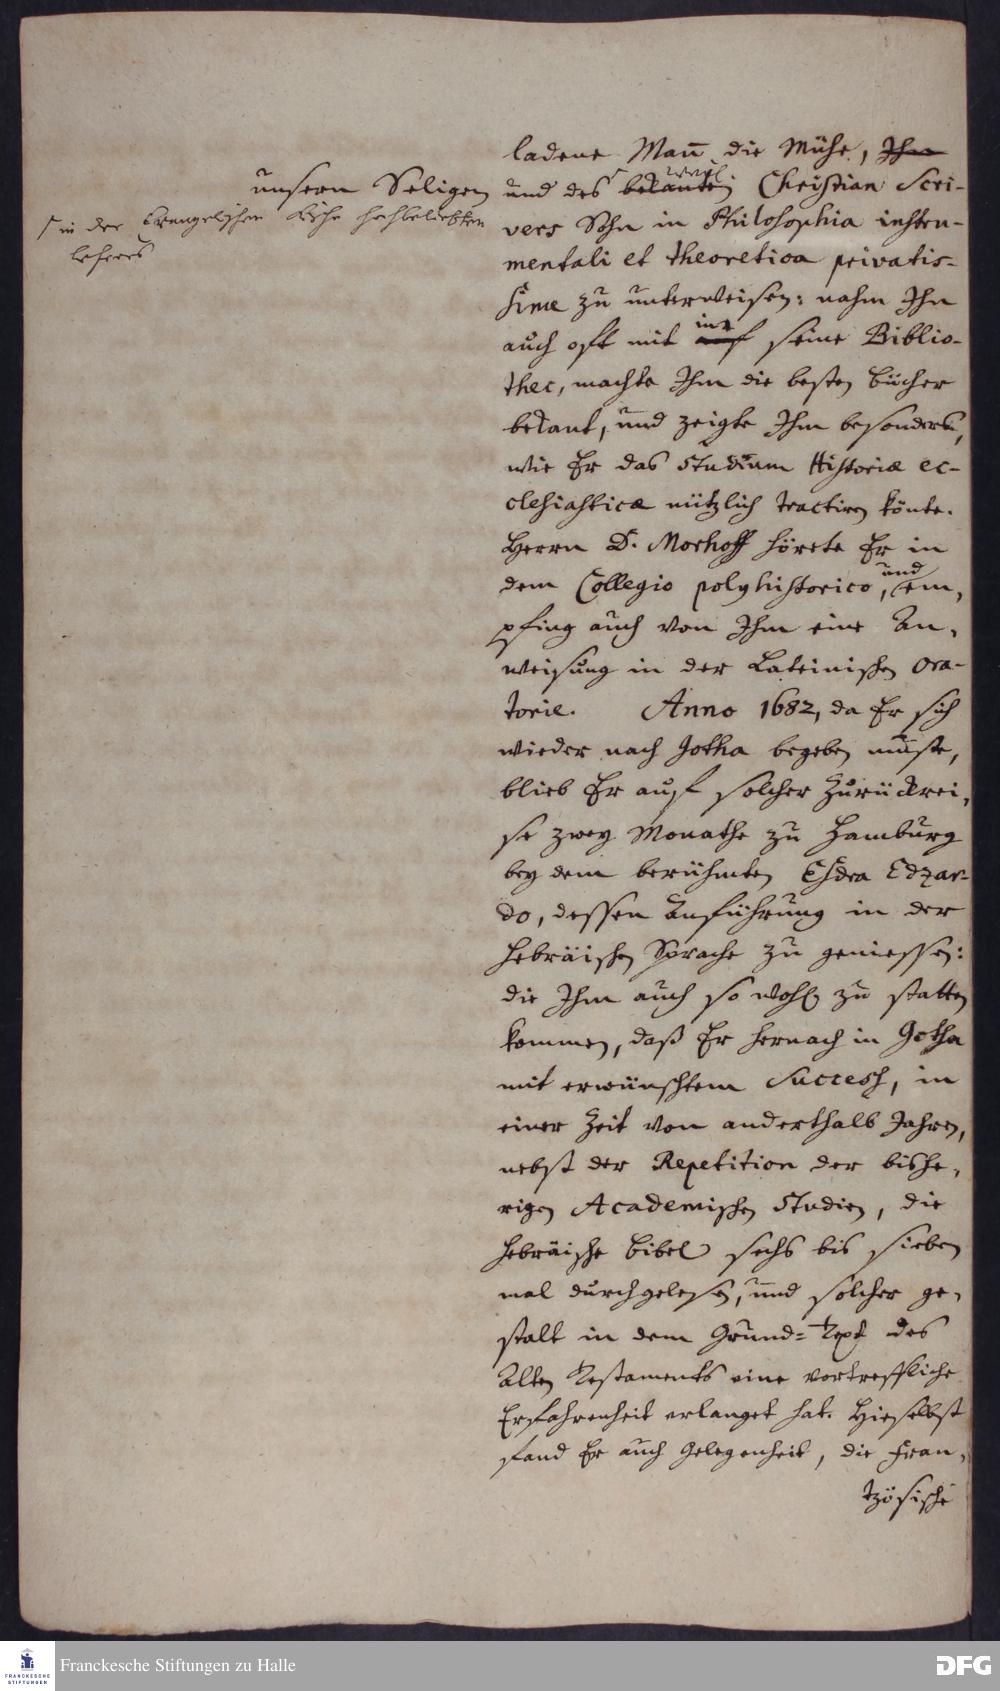 ladene Mañ die Mühe, Ihn
unsern Seligen
und des bekanten Christian Scri-
in der Evangelischen Kirche hochbeliebten
Lehrers
vers Sohn in Philosophia instru-
mentali et theoretica privatis-
sime zu unterweisen: nahm Ihn
auch oft mit auf in seine Biblio-
thec, machte Ihm die besten Bücher
bekant, und zeigte Ihm besonders,
wie Er das Studium Historiæ ec-
clesiasticæ nützlich tractiren könte.
Herrn D. Morhoff hörete Er in
dem Collegio polyhistorico, und em-
pfing auch von Ihm eine An-
weisung in der Lateinischen Ora-
torie. Anno 1682, da Er sich
wieder nach Gotha begeben muste,
blieb Er auf solcher Zurückrei-
se zwey Monathe zu Hamburg
bey dem berühmten Esdra Edzar-
do, dessen Anführung in der
Hebräischen Sprache zu geniessen:
die Ihm auch so wohl zu statten
kommen, daß Er hernach in Gotha
mit erwünschtem Success, in
einer Zeit von anderthalb Jahren,
nebst der Repetition der bishe-
rigen Academischen Studien, die
Hebräische Bibel sechs bis sieben
mal durchgelesen, und solcher ge-
stalt in dem Grund-Text des
Alten Testaments eine vortreffliche
Erfahrenheit erlanget hat. Hieselbst
fand Er auch Gelegenheit, die Fran-
tzösische
FRANCKESCHE
STIFTUNGEN
Franckesche Stiftungen zu Halle
DFG